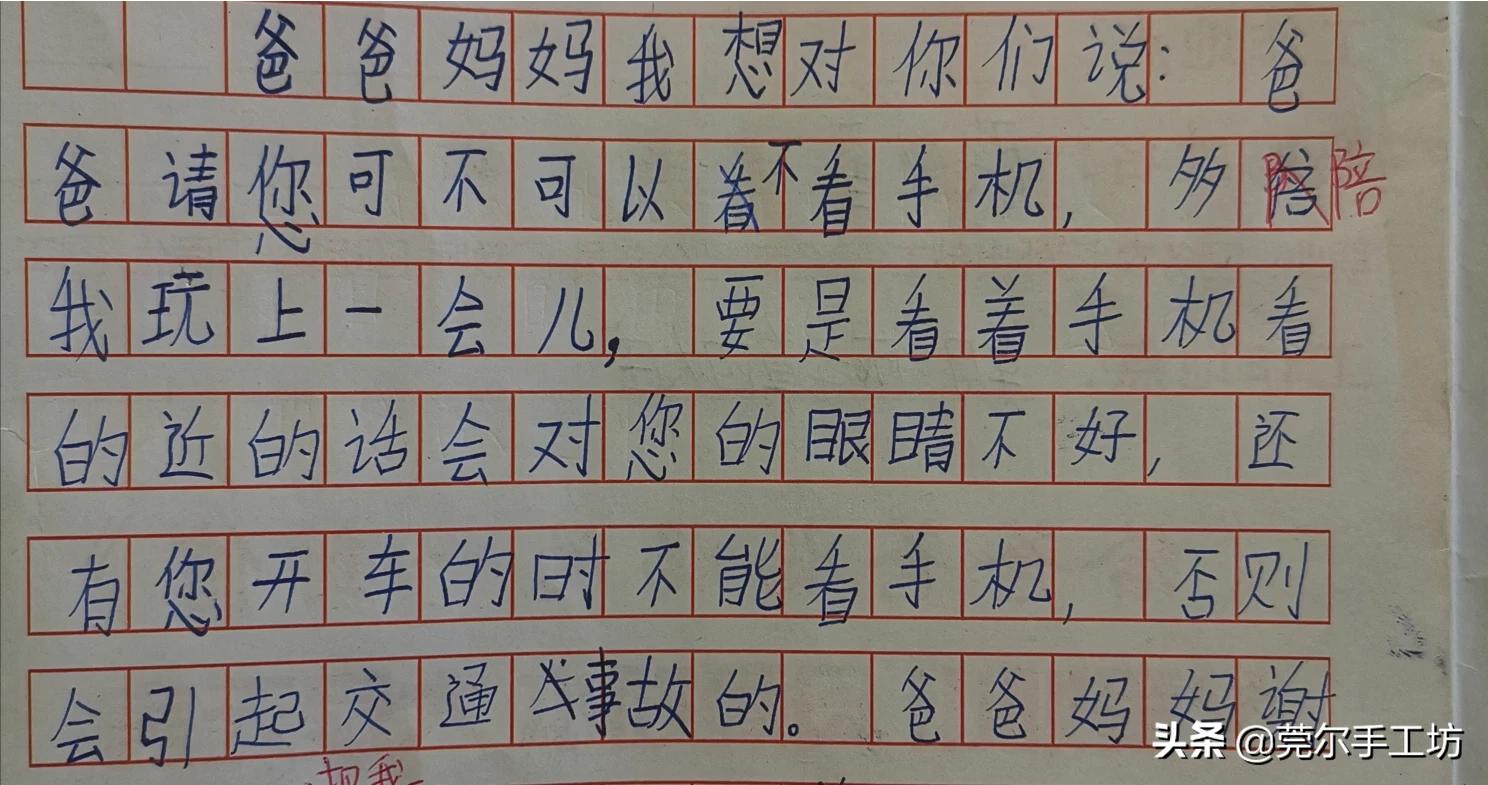 爸爸妈妈我想对你们说：爸
爸请您可不可以着不看手机，多陪陪
我玩上一会儿，要是看着手机看
的近的话会对您的眼睛不好，还
有您开车的时不能看手机，否则
会引起交通事故的。爸爸妈妈谢
把我
头条 @莞尔手工坊